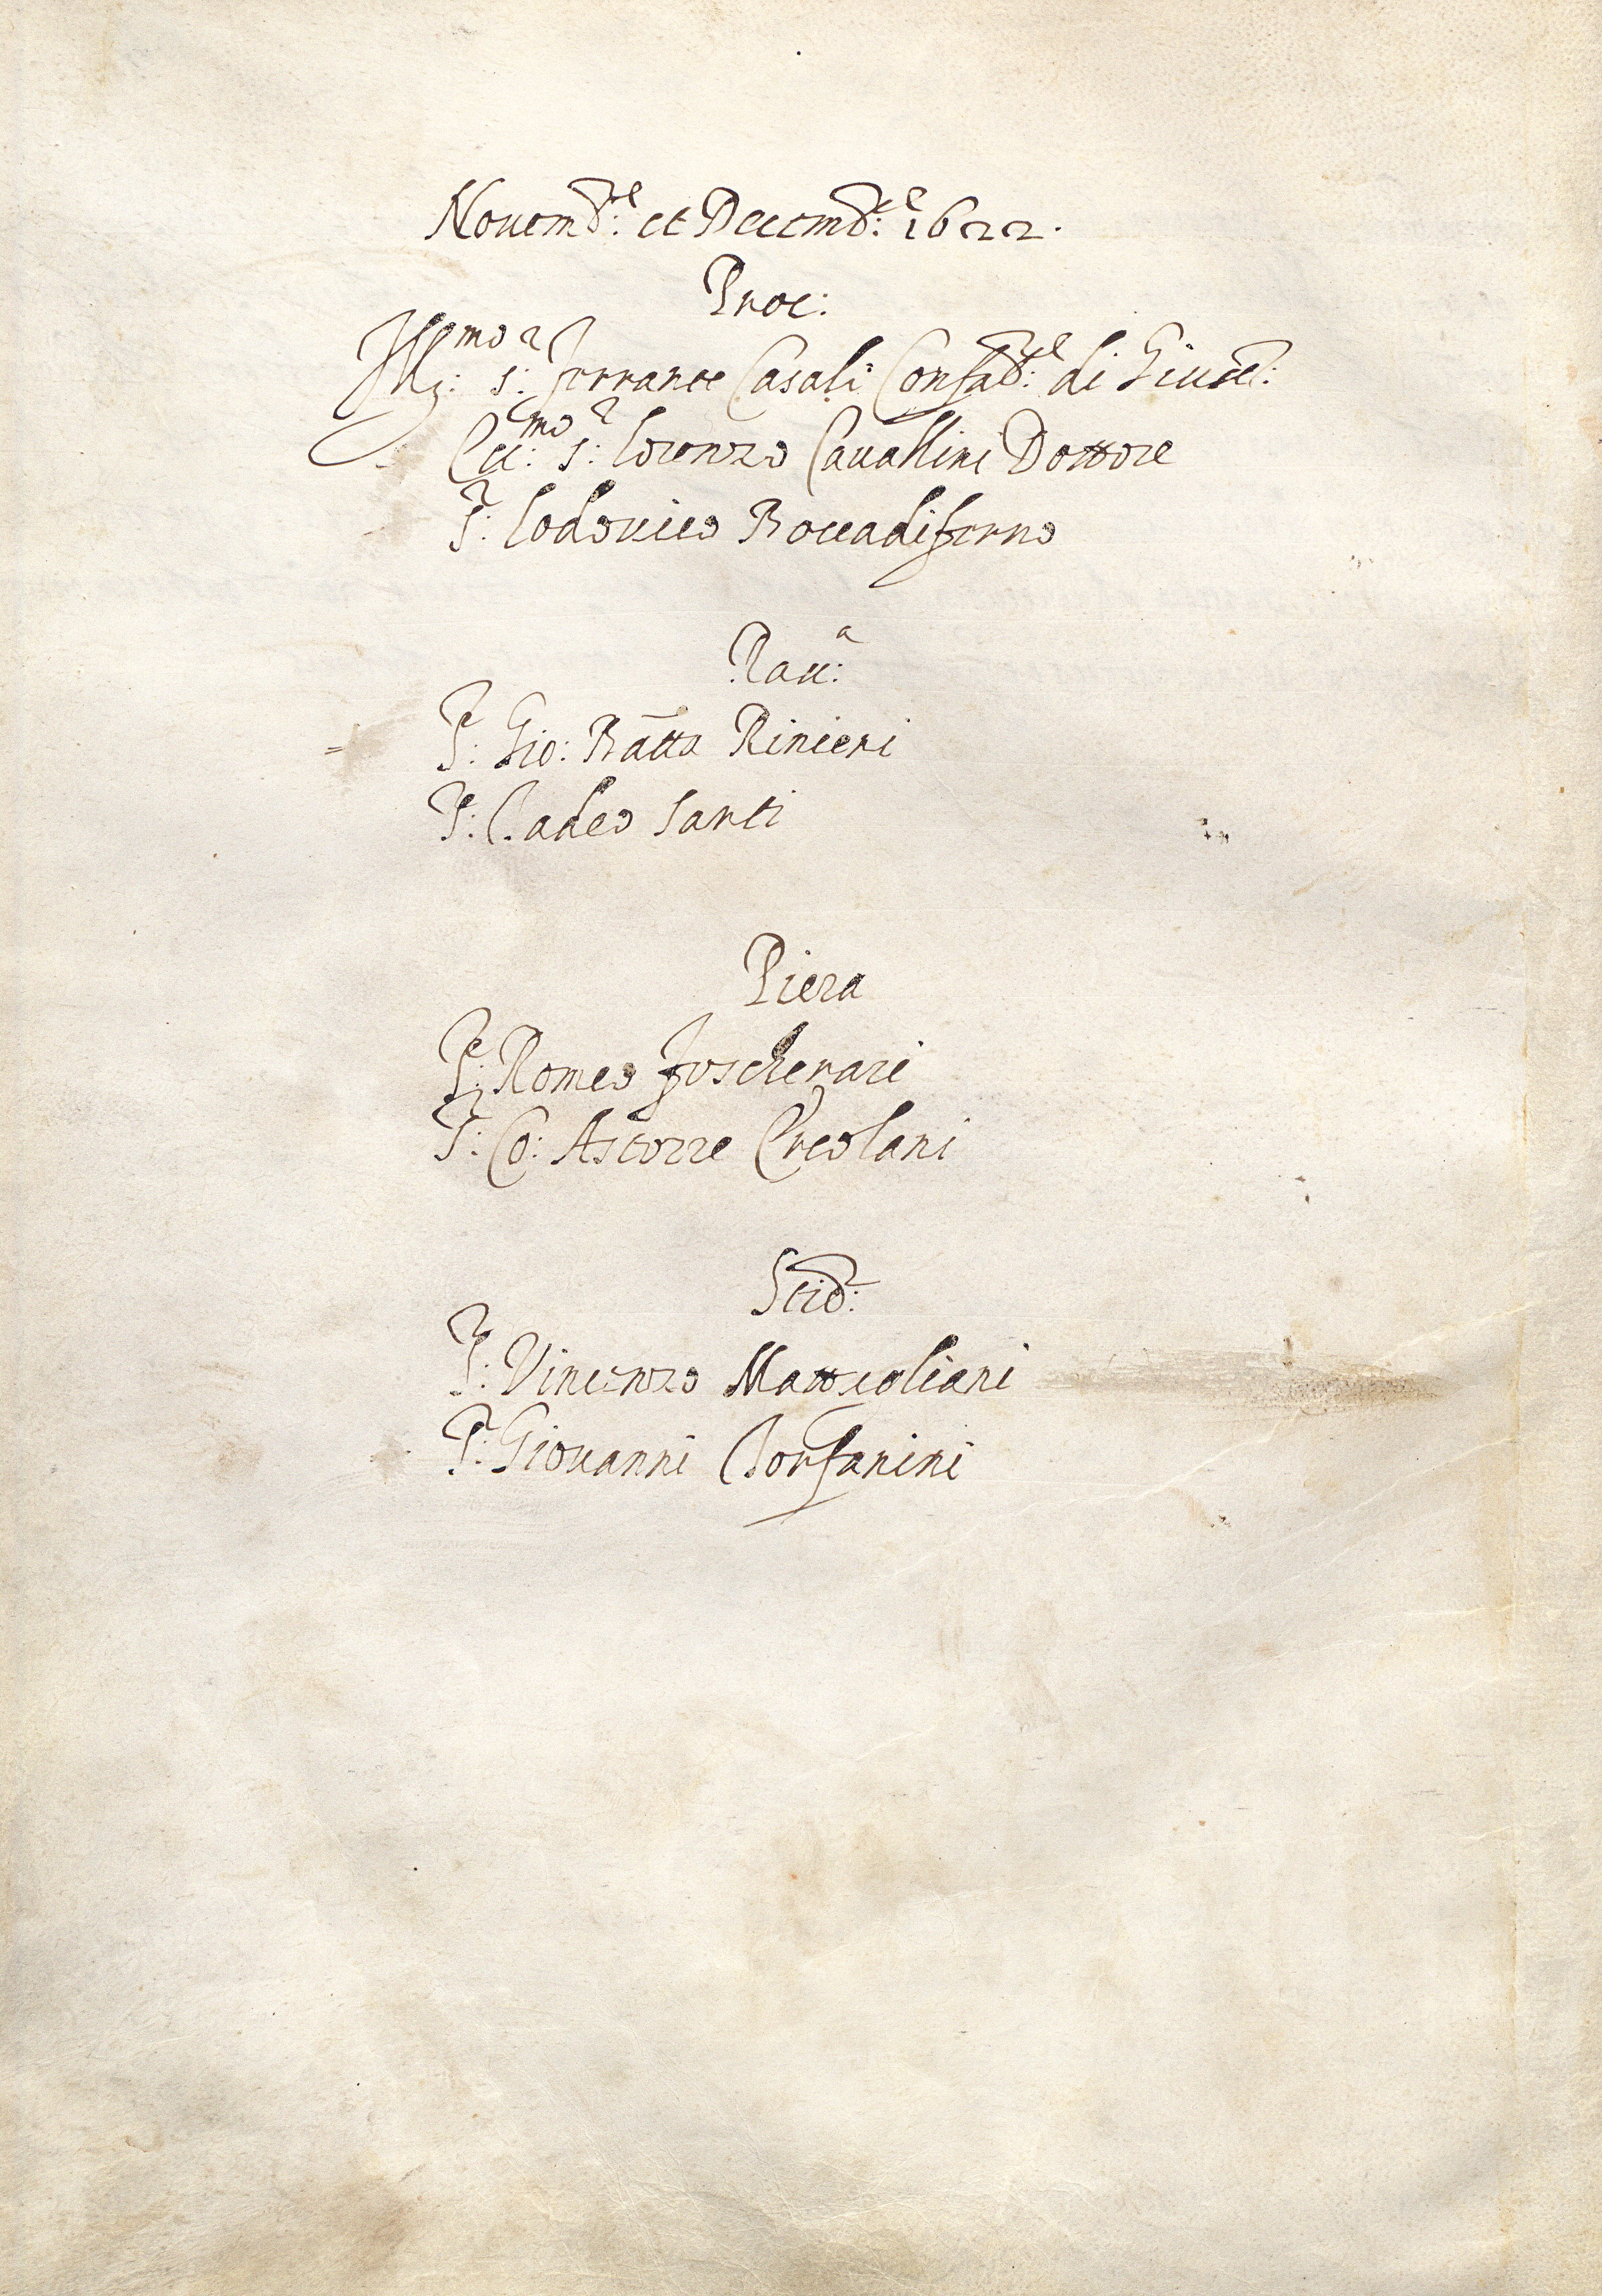 Nouemb:re et Decemb:re 1622.
Proc:
Ill:mo s:r Ferrante Casali Confal:re di Giust:
Ecc:mo s:r Lorenzo Cauallini Dottore
S:r Lodouico Boccadiferro
Rau:a
S:r Gio: Batta Rinieri
S:r Tadeo Santi
Piera
S:r Romeo Foscherari
S:r Co: Astorre Ercolani
S:r Vincenzo
S:r Giouanni